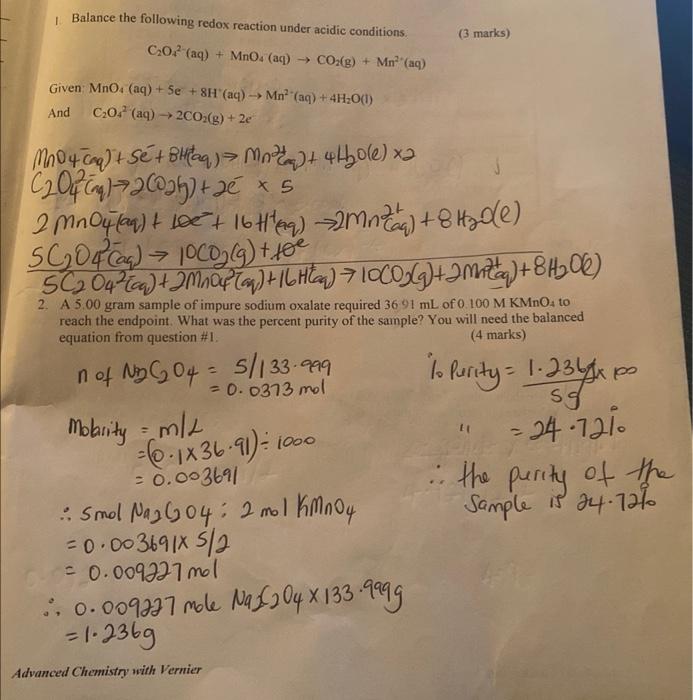 1. Balance the following redox reaction under acidic conditions. (3 marks)
C₂O₄²⁻(aq) + MnO₄⁻(aq) → CO₂(g) + Mn²⁺(aq)
Given: MnO₄⁻(aq) + 5e⁻ + 8H⁺(aq) → Mn²⁺(aq) + 4H₂O(l)
And C₂O₄²⁻(aq) → 2CO₂(g) + 2e⁻
MnO₄⁻(aq) + 5e⁻ + 8H⁺(aq) → Mn²⁺(aq) + 4H₂O(l) × 2
C₂O₄²⁻(aq) → 2CO₂(g) + 2e⁻ × 5
2MnO₄⁻(aq) + 10e⁻ + 16H⁺(aq) → 2Mn²⁺(aq) + 8H₂O(l)
5C₂O₄²⁻(aq) → 10CO₂(g) + 10e
5C₂O₄²⁻(aq) + 2MnO₄⁻(aq) + 16H⁺(aq) → 10CO₂(g) + 2Mn²⁺(aq) + 8H₂O(l)
2. A 5.00 gram sample of impure sodium oxalate required 36.91 mL of 0.100 M KMnO₄ to
reach the endpoint. What was the percent purity of the sample? You will need the balanced
equation from question #1. (4 marks)
n of Na₂C₂O₄ = 5/133.999
= 0.0373 mol
Molarity = m/L
= (0.1 × 36.91) ÷ 1000
= 0.003691
∴ 5mol Na₂C₂O₄ : 2 mol KMnO₄
= 0.003691 × 5/2
= 0.009227 mol
∴ 0.009227 mole Na₂C₂O₄ × 133.999g
= 1.236g
% Purity = 1.236g × 100
5g
" = 24.72%
∴ the purity of the
sample is 24.72%
Advanced Chemistry with Vernier